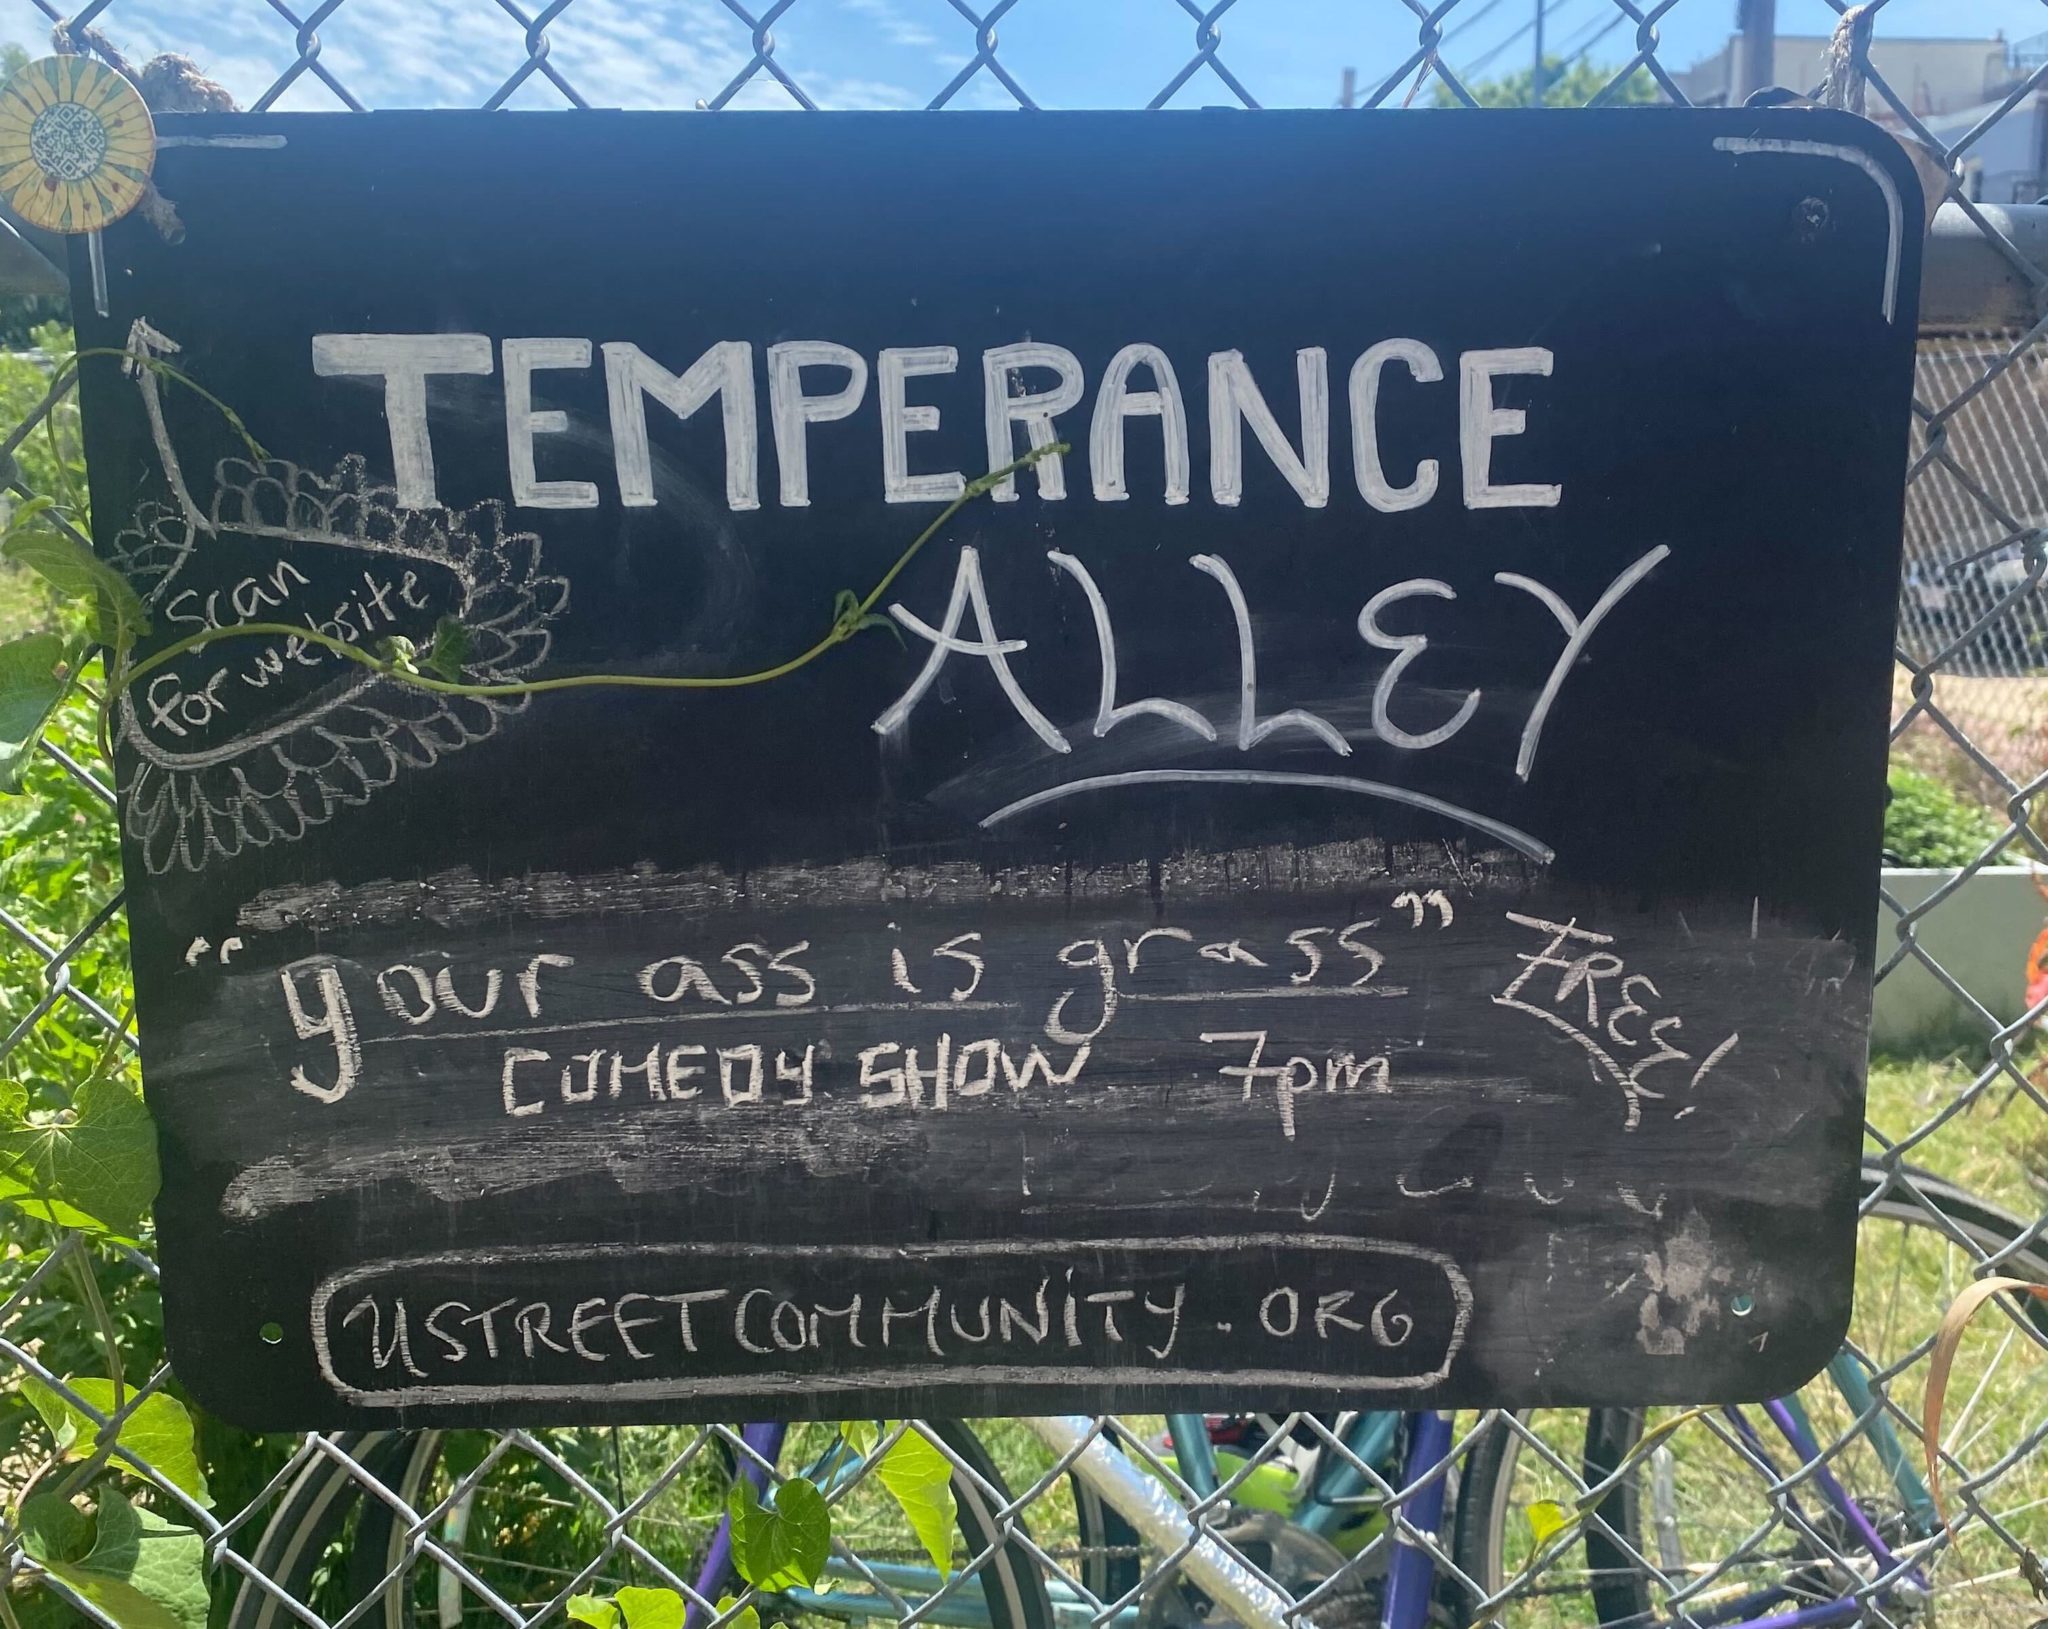 TEMPERANCE
ALLEY
scan
for website
"your ass is grass"
FREE!
COMEDY SHOW 7pm
USTREETCOMMUNITY.ORG